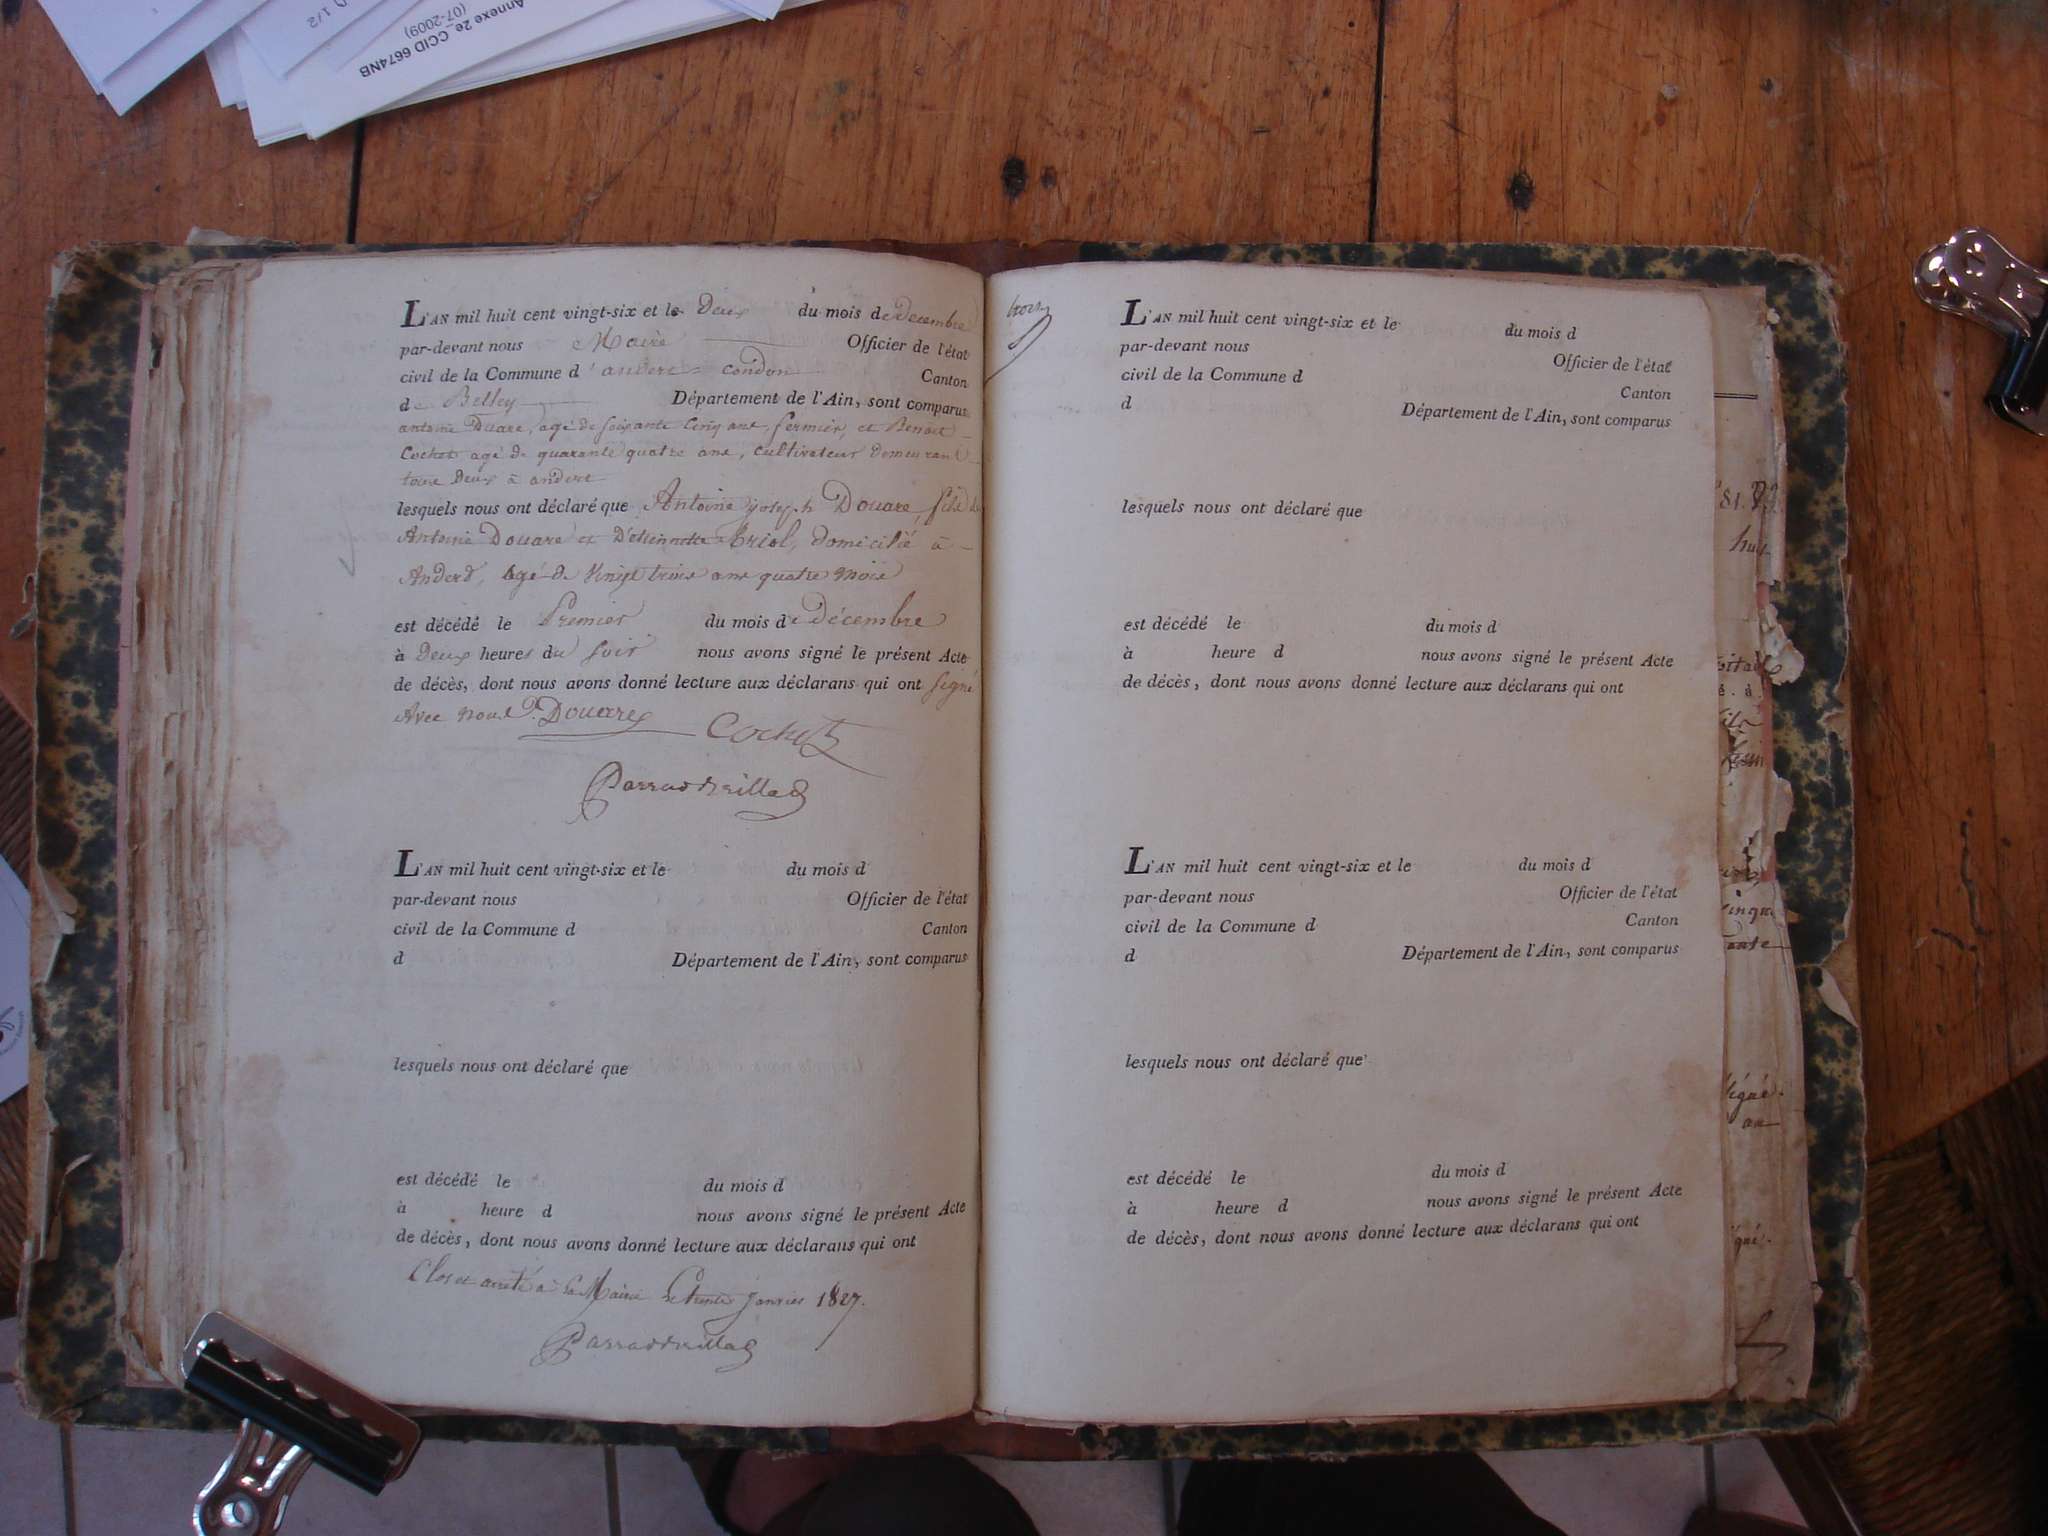 Annexe 2e_CCID 6674NB
(07-2009)
1/2
L'AN mil huit cent vingt-six et le Deux du mois de Decembre
par-devant nous Maire Officier de l'état
civil de la Commune d'andert-condon Canton
de Belley Département de l'Ain, sont comparus
antoine Duare, agé de soixante cinq ans, fermier, et Benoit
Cochet agé de quarante quatre ans, cultivateur demeurant
tous Deux à andert
lesquels nous ont déclaré que Antoine joseph Douare, fils de
Antoine Douare et D'étiennette Briol, domicilié à
Anderd, agé de Vingt trois ans quatre mois
est décédé le Premier du mois de Décembre
à Deux heures du soir nous avons signé le présent Acte
de décès, dont nous avons donné lecture aux déclarans qui ont signé
Avec nous. Douare Cochet
L'AN mil huit cent vingt-six et le du mois d
par-devant nous Officier de l'état
civil de la Commune d Canton
d Département de l'Ain, sont comparus
lesquels nous ont déclaré que
est décédé le du mois d
à heure d nous avons signé le présent Acte
de décès, dont nous avons donné lecture aux déclarans qui ont
Clos et arrêté à la Mairie Le trente janvier 1827.
L'AN mil huit cent vingt-six et le du mois d
par-devant nous Officier de l'état
civil de la Commune d Canton
d Département de l'Ain, sont comparus
lesquels nous ont déclaré que
est décédé le du mois d
à heure d nous avons signé le présent Acte
de décès, dont nous avons donné lecture aux déclarans qui ont
L'AN mil huit cent vingt-six et le du mois d
par-devant nous Officier de l'état
civil de la Commune d Canton
d Département de l'Ain, sont comparus
lesquels nous ont déclaré que
est décédé le du mois d
à heure d nous avons signé le présent Acte
de décès, dont nous avons donné lecture aux déclarans qui ont